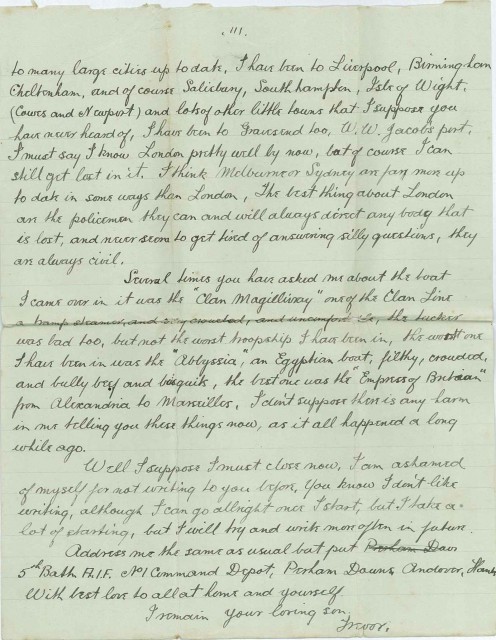 111.
to many large cities up to date, I have been to Liverpool, Birmingham
Cheltenham, and of course Salisbury, Southampton, Isle of Wight,
(Cowes and Newport) and lots of other little towns that I suppose you
have never heard of, I have been to Gravesend too, W. W. Jacobs port,
I must say I know London pretty well by now, but of course I can
still get lost in it. I think Melbourne or Sydney are far more up
to date in some ways than London, The best thing about London
are the policemen they can and will always direct any body that
is lost, and never seem to get tired of answering silly questions, they
are always civil.
Several times you have asked me about the boat
I came over in it was the "Clan Magillivray" one of the Clan Line
a tramp steamer, and very crowded, and uncomfortable, the tucker
was bad too, but not the worst troopship I have been in, the worst one
I have been in was the "Abbyssia", an Egyptian boat, filthy, crowded,
and bully beef and bisquits, the best one was the "Empress of Britain"
from Alexandria to Marseilles, I don't suppose there is any harm
in me telling you these things now, as it all happened a long
while ago.
Well I suppose I must close now, I am ashamed
of myself for not writing to you before, you know I don't like
writing, although I can go allright once I start, but I take a
lot of starting, but I will try and write more often in future.
Address me the same as usual but put Perham Down
5th Bath A.I.F. No1 Command Depot, Perham Downs, Andover, Hants
With best love to all at home and yourself
I remain your loving son.
Trevor.